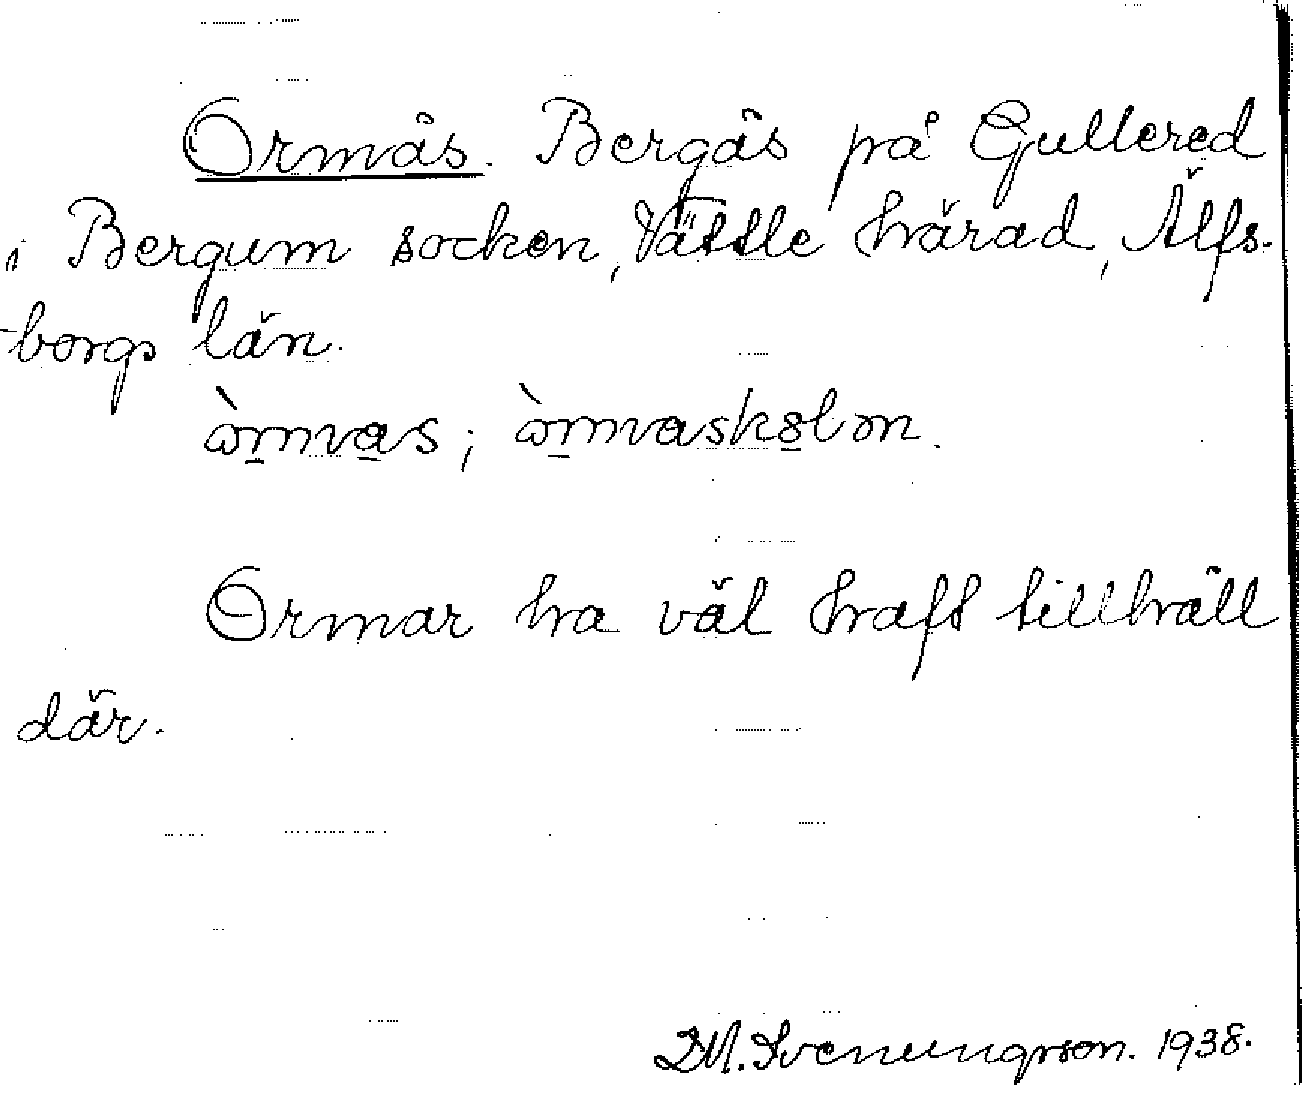 Ormås. Bergås på Gullered
i Bergum socken, Vättle härad, Älfs-
-borgs län.
òrmvas; òrmvaskslon.
Ormar ha väl haft tillhåll
där.
D.M. Svenungsson. 1938.